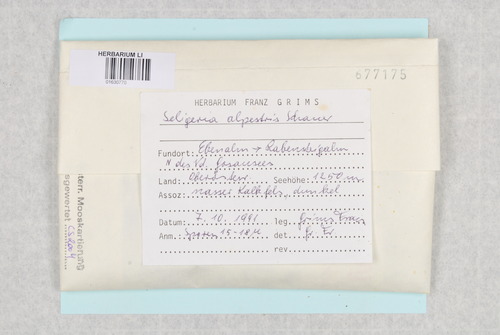 HERBARIUM LI
677175
HERBARIUM FRANZ GRIMS
Seligeria alpestris Schauer
Fundort: Ebenalm → Rabensteigalm
N des Vd. Gosausees
Land: Oberösterr. Seehöhe: 1250 m
Assoz: nasser Kalkfels, dunkel
Datum: 7.10.1991 leg. Grims Franz
Anm.: Sporen 15-18 µ det. Gr. Fr
rev.
terr. Mooskartierung
sgewertet